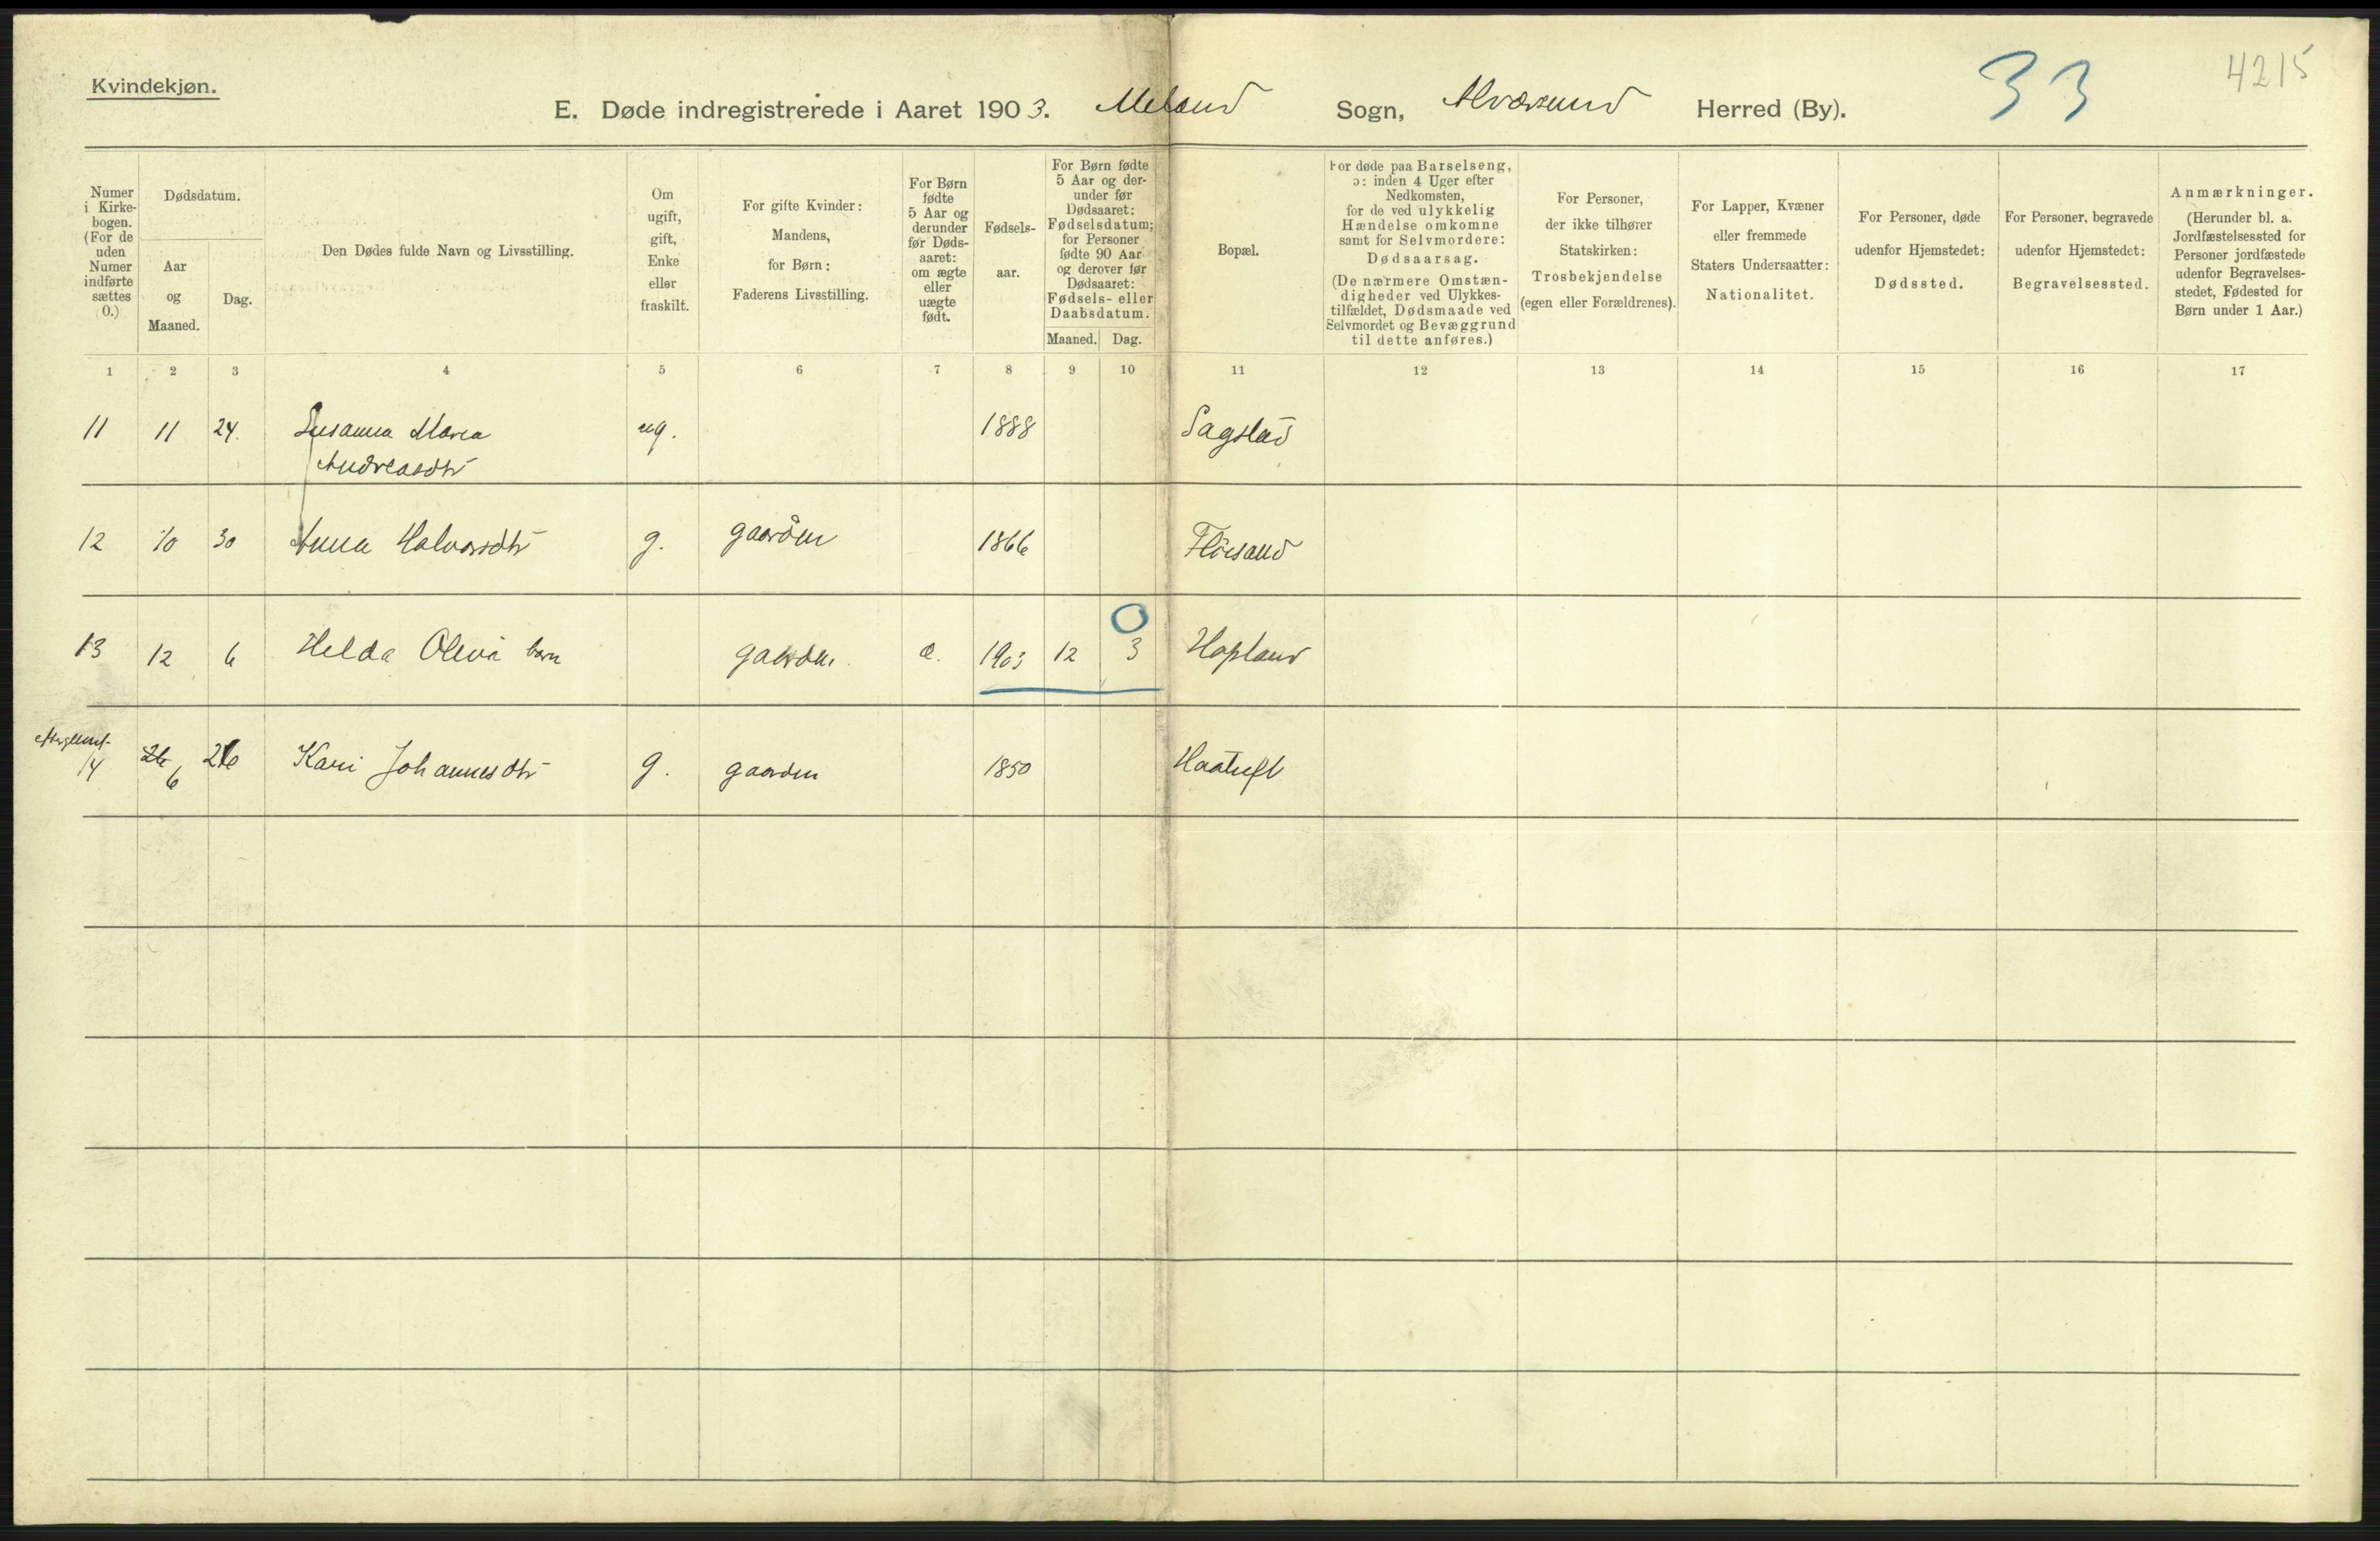 Kvindekjøn.
E. Døde indregistrerede i Aaret 1903. Meland Sogn, Alversund Herred (By).
33
4215
Numer i Kirkebogen. (For de uden Numer indførte sættes 0.)
Dødsdatum.
Aar og Maaned.
Dag.
Den Dødes fulde Navn og Livsstilling.
Om ugift, gift, Enke eller fraskilt.
For gifte Kvinder: Mandens, for Børn: Faderens Livsstilling.
For Børn fødte 5 Aar og derunder før Dødsaaret: om ægte eller uægte født.
Fødselsaar.
For Børn fødte 5 Aar og derunder før Dødsaaret: Fødselsdatum; for Personer fødte 90 Aar og derover før Dødsaaret: Fødsels- eller Daabsdatum.
Maaned. Dag.
Bopæl.
For døde paa Barselseng, ɔ: inden 4 Uger efter Nedkomsten, for de ved ulykkelig Hændelse omkomne samt for Selvmordere: Dødsaarsag. (De nærmere Omstændigheder ved Ulykkestilfældet, Dødsmaade ved Selvmordet og Bevæggrund til dette anføres.)
For Personer, der ikke tilhører Statskirken: Trosbekjendelse (egen eller Forældrenes).
For Lapper, Kvæner eller fremmede Staters Undersaatter: Nationalitet.
For Personer, døde udenfor Hjemstedet: Dødssted.
For Personer, begravede udenfor Hjemstedet: Begravelsessted.
Anmærkninger. (Herunder bl. a. Jordfæstelsessted for Personer jordfæstede udenfor Begravelsesstedet, Fødested for Børn under 1 Aar.)
1 2 3 4 5 6 7 8 9 10 11 12 13 14 15 16 17
11 11 24. Susanna Maria ug. 1888 Sagstad
Andreasdtr
12 10 30 Anna Halvorsdtr g. gaardm 1866 Flöesand
0
13 12 6 Helda Olevi barn gaardm. æ. 1903 12 3 Hopland
14 6 26 Kari Johannesdtr g. gaardm 1850 Haatuft